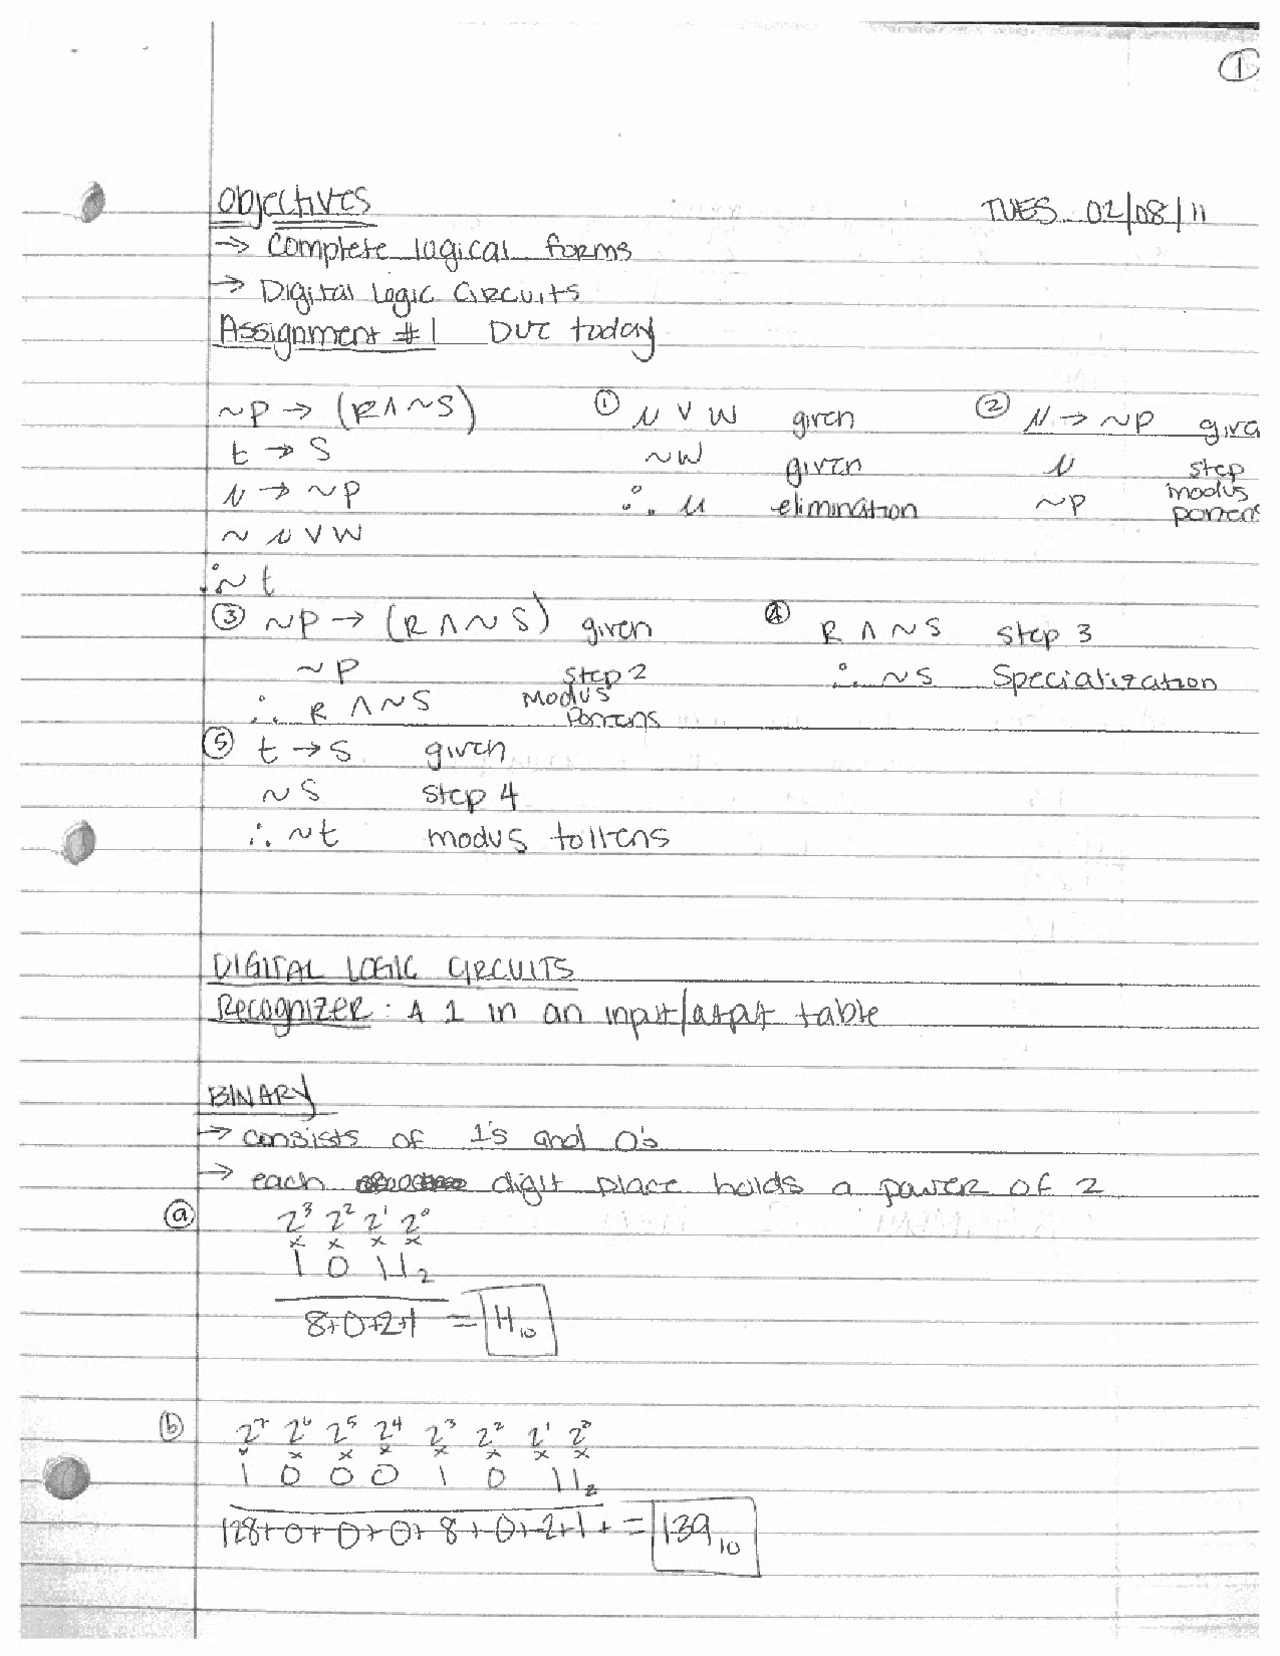 ①
Objectives
TUES 02/08/11
→ Complete logical forms
→ Digital Logic Circuits
Assignment #1 Due today
~P → (R ∧ ~S)
t → S
u → ~P
~ u ∨ W
∴ ~t
① u ∨ W given
~W given
∴ u elimination
② u → ~P give
u step
~P modus ponens
③ ~P → (R ∧ ~S) given
~P Step 2
∴ R ∧ ~S Modus Ponens
④ R ∧ ~S step 3
∴ ~S Specialization
⑤ t → S given
~S step 4
∴ ~t modus tollens
DIGITAL LOGIC CIRCUITS
Recognizer: A 1 in an input/output table
BINARY
→ consists of 1's and 0's
→ each digit place holds a power of 2
ⓐ 2³ 2² 2¹ 2⁰
x x x x
1 0 1 1₂
8+0+2+1 = 11₁₀
ⓑ 2⁷ 2⁶ 2⁵ 2⁴ 2³ 2² 2¹ 2⁰
x x x x x x x x
1 0 0 0 1 0 1 1₂
128+0+0+0+8+0+2+1+ = 139₁₀